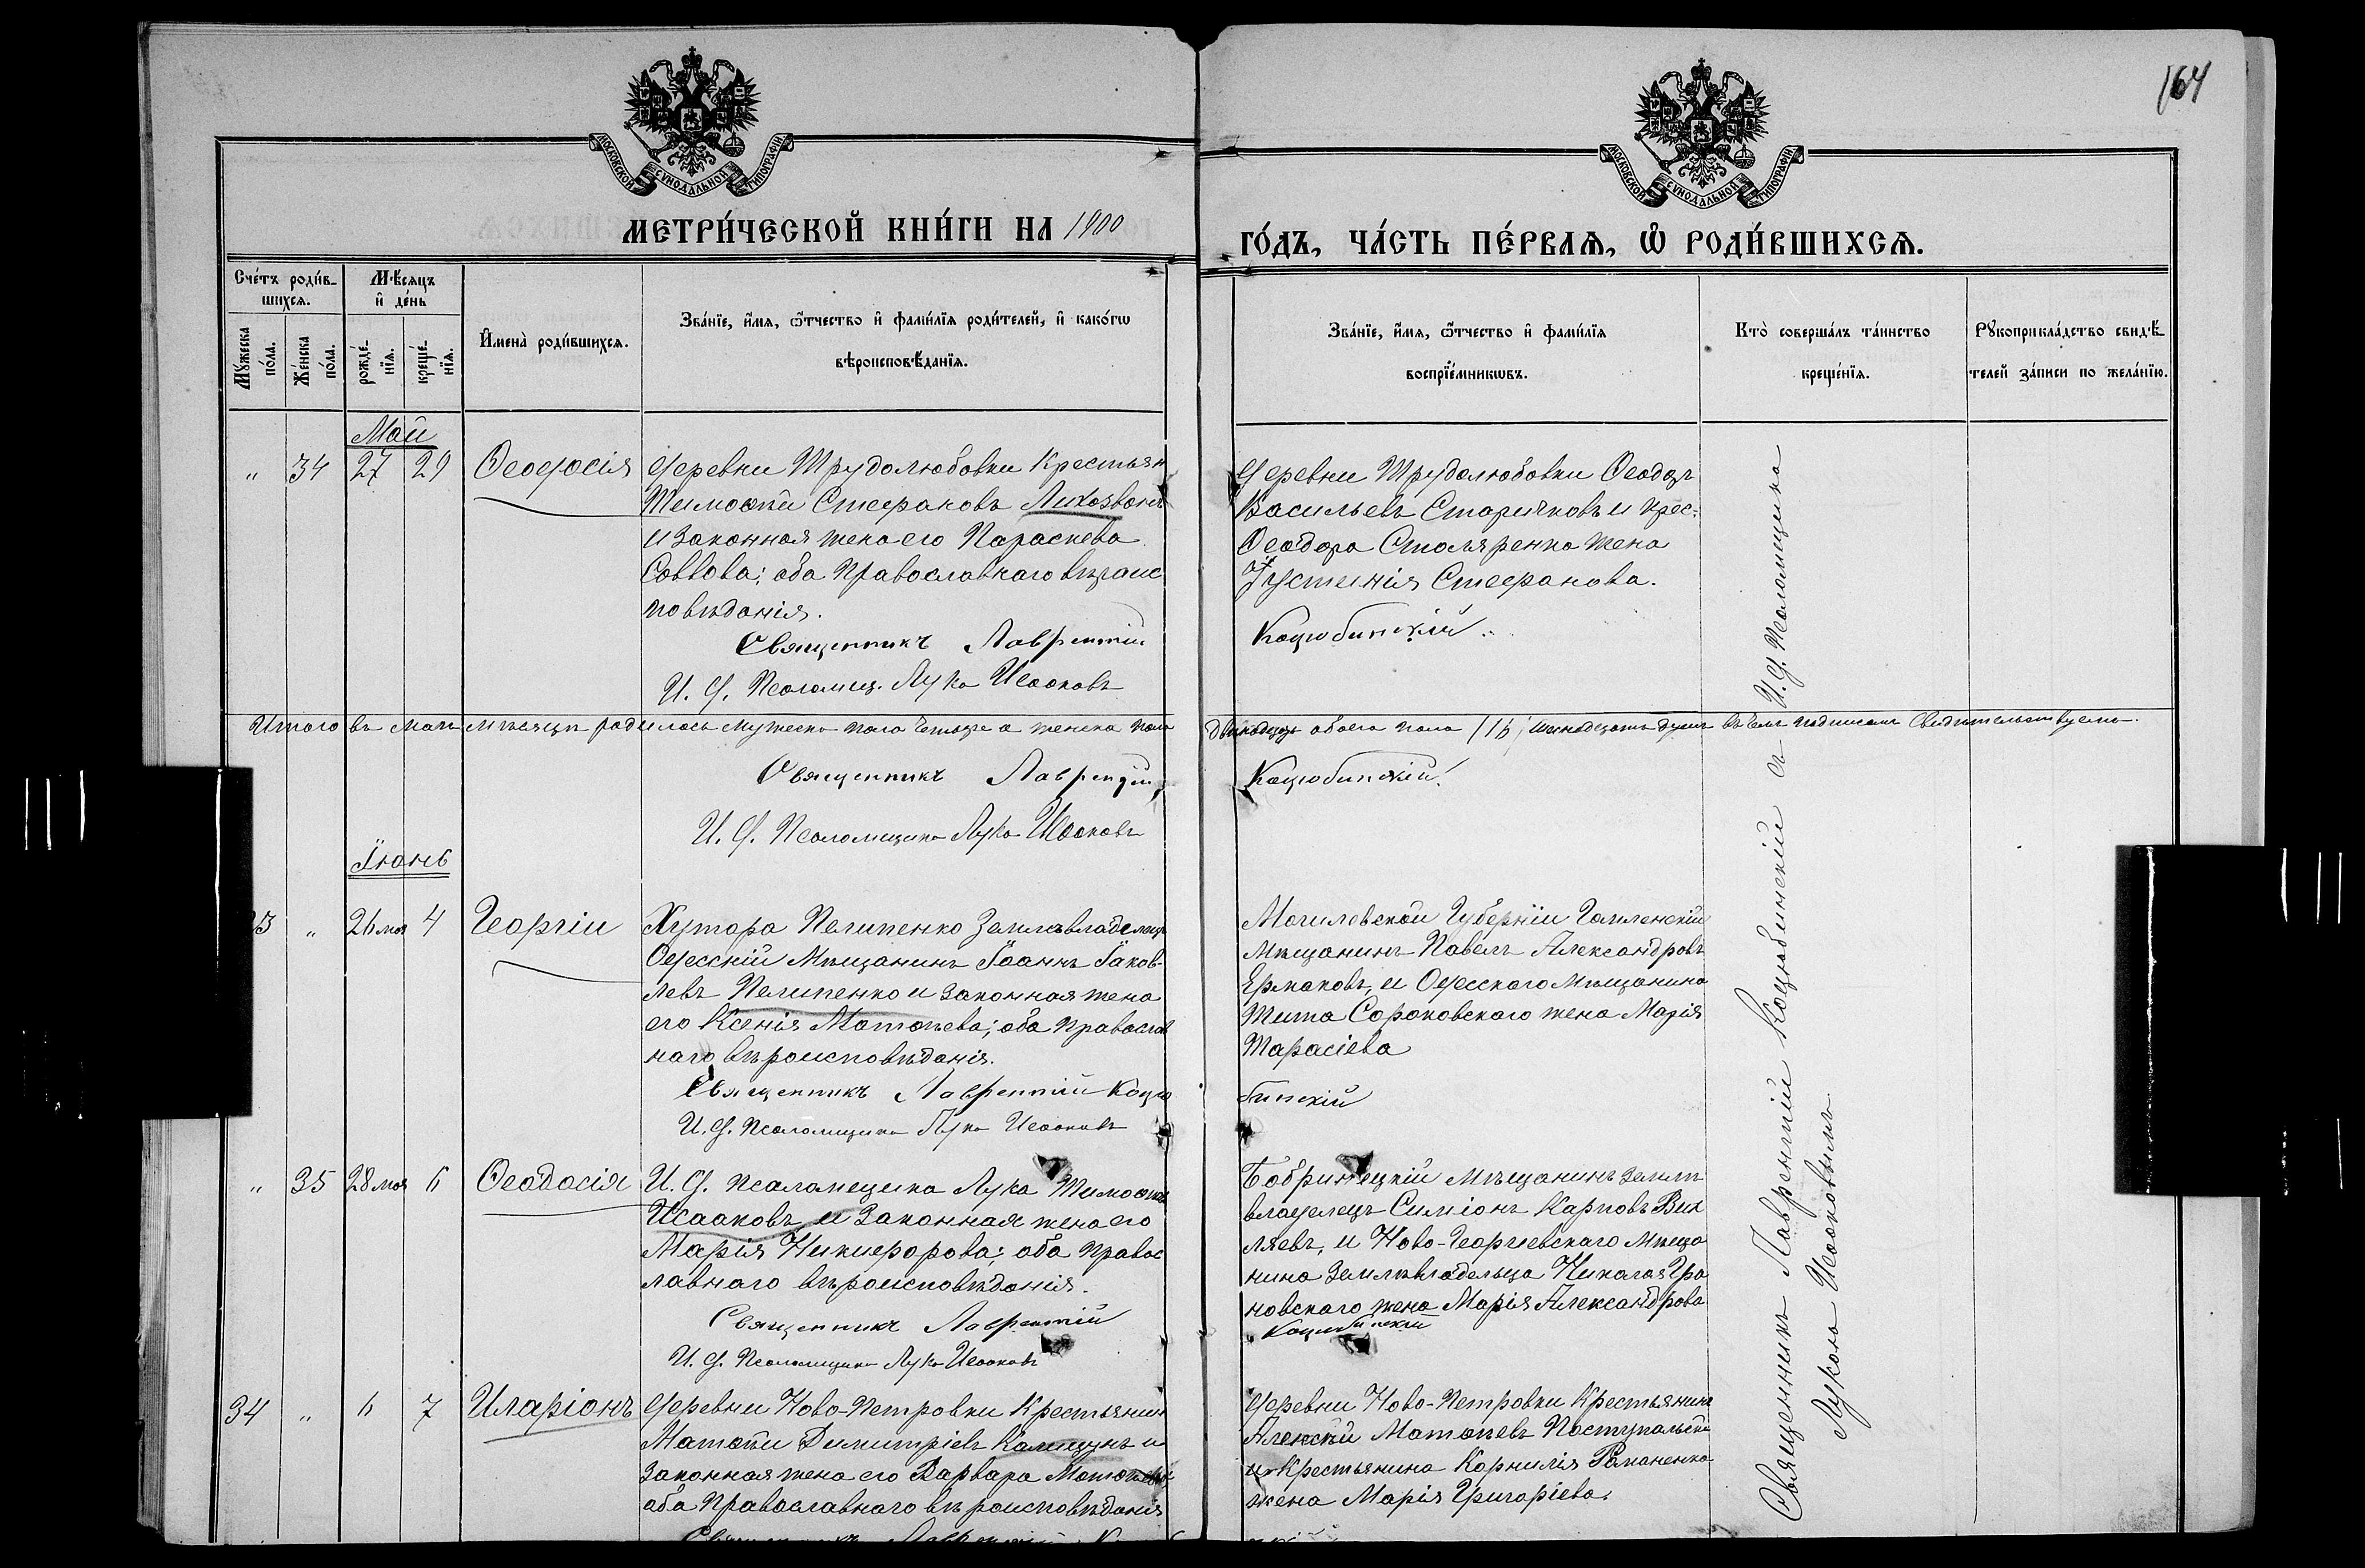 164
МОСКОВСКОЙ СУНОДАЛЬНОЙ ТИПОГРАФІИ
МОСКОВСКОЙ СУНОДАЛЬНОЙ ТИПОГРАФІИ
МЕТРИ́ЧЕСКОЙ КНИ́ГИ НА 1900
ГО́ДЪ, ЧА́СТЬ ПЕ́РВАѦ, Ѡ҆ РОДИ́ВШИХСѦ.
Сче́тъ роди́в-
шихсѧ.
Мѣ́сѧцъ
и҆ де́нь
Мꙋ́жеска
по́ла.
Же́нска
по́ла.
рожде́-
нїѧ.
креще́-
нїѧ.
И҆мена̀ роди́вшихсѧ.
Зва́нїе, и҆́мѧ, ѻ҆́тчество и҆ фами́лїѧ роди́телей, и҆ како́гѡ
вѣроисповѣ́данїѧ.
Зва́нїе, и҆́мѧ, ѻ҆́тчество и҆ фами́лїѧ
воспрїе́мникѡвъ.
Кто̀ соверша́лъ та́инство
креще́нїѧ.
Рꙋкоприкла́дство свидѣ́-
телей за́писи по жела́нїю.
Май
„ 34 27 29 Ѳеодосія
деревни Трудолюбовки Крестьян
Тимоѳей Стефановъ Лихозвонъ
и законная жена его Параскева
Саввова; оба Православнаго вѣроис
повѣданія.
Священникъ Лаврентій
И. д. Псаломщ. Лука Исааковъ
деревни Трудолюбовки Ѳеодоръ
Васильевъ Старичковъ и крес.
Ѳеодора Столяренко жена
Іустинія Стефанова.
Коцюбинскій.
Итого въ маѣ мѣсяцѣ родилось мужеска пола четыре а женска пола
двѣнадцать обоего пола /16/ шестнадцать душъ въ чемъ подписомъ свидѣтельствуемъ.
Священникъ Лаврентій
Коцюбинскій.
И. д. Псаломщика Лука Исааковъ
Іюнь
3 „ 26 мая 4 Георгій
Хутора Пелипенко Землевладелецъ
Одесскій Мѣщанинъ Іоаннъ Іаков-
левъ Пелипенко и законная жена
его Ксенія Матѳеева; оба Православ
наго вѣроисповѣданія.
Священникъ Лаврентій Коцю
И. д. Псаломщика Лука Исааковъ
Могилевской Губерніи Гомленскій
Мѣщанинъ Павелъ Александровъ
Ермаковъ, и Одесскаго Мѣщанина
Тита Сороковскаго жена Марія
Тарасіева
бинскій
„ 35 28 мая 6 Ѳеодосія
И. д. псаломщика Лука Тимоѳеев
Исааковъ и законная жена его
Марія Никифорова; оба правос
лавнаго вѣроисповѣданія.
Священникъ Лаврентій
И. д. Псаломщика Лука Исааковъ
Бобринецкій мѣщанинъ землѣ
владелецъ Симіонъ Карповъ
и Ново-Георгіевскаго Мѣща
нина Землѣвладельца Николая Гра
новскаго жена Марія Александрова
Коцюбинскій
34 „ 6 7 Иларіонъ
деревни Ново-Петровки Крестьянин
Матѳей Димитріевъ и
законная жена его Варвара Матѳеева
оба Православнаго вѣроисповѣданія
деревни Ново-Петровки Крестьянинъ
Алексій Матѳеевъ
и Крестьянина Корнилія Романенко
жена Марія Григоріева.
Священникъ Лаврентій Коцюбинскій съ И. д. Псаломщика
Лукою Исааковымъ.